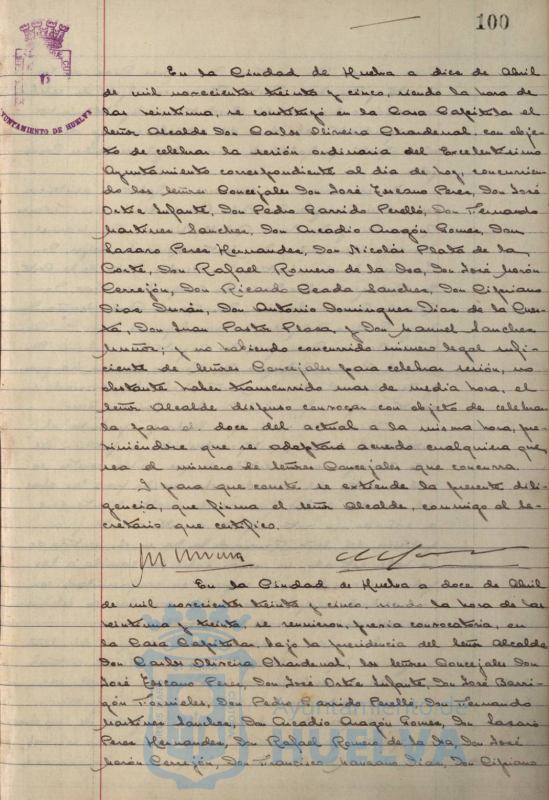 100
AYUNTAMIENTO DE HUELVA
En la Ciudad de Huelva a diez de Abril
de mil novecientos treinta y cinco, siendo la hora de
las veintiuna, se constituyó en la Casa Capitular el
señor Alcalde Don Carlos Oliveira Chardenal, con obje-
to de celebrar la sesión ordinaria del Excelentísimo
Ayuntamiento correspondiente al día de hoy, concurrien-
do los señores Concejales Don José Escano Perez, Don José
Ortiz Infante, Don Pedro Garrido Perelló, Don Fernando
Martinez Sanchez, Don Arcadio Aragón Gomez, Don
Lazaro Perez Hernandez, Don Nicolás Plata de la
Corte, Don Rafael Romero de la Osa, Don José Morón
Cerrejón, Don Ricardo Sanchez, Don Cipriano
Diaz Durán, Don Antonio Dominguez Diaz de la Cues-
ta, Don Juan Pastor Plaza, y Don Manuel Sanchez
Muñoz; y no habiendo concurrido número legal sufi-
ciente de señores Concejales para celebrar sesión, no
obstante haber transcurrido mas de media hora, el
señor Alcalde dispuso convocar con objeto de celebrar-
la para el doce del actual a la misma hora, pre-
viniéndose que se adoptará acuerdo cualquiera que
sea el número de señores Concejales que concurra.
Y para que conste se extiende la presente dili-
gencia, que firma el señor Alcalde, conmigo el Se-
cretario que certifico.
En la Ciudad de Huelva a doce de Abril
de mil novecientos treinta y cinco, siendo la hora de las
veintiuna y treinta se reunieron, previa convocatoria, en
la Casa Capitular, bajo la presidencia del señor Alcalde
Don Carlos Oliveira Chardenal, los señores Concejales Don
José Escano Perez, Don José Ortiz Infante, Don José Barri-
gón Don Pedro Garrido Perelló, Don Fernando
Martinez Sanchez, Don Arcadio Aragón Gomez, Don Lazaro
Perez Hernandez, Don Rafael Romero de la Osa, Don José
Morón Cerrejón, Don Francisco Diaz, Don Cipriano
Ayuntamiento de
HUELVA